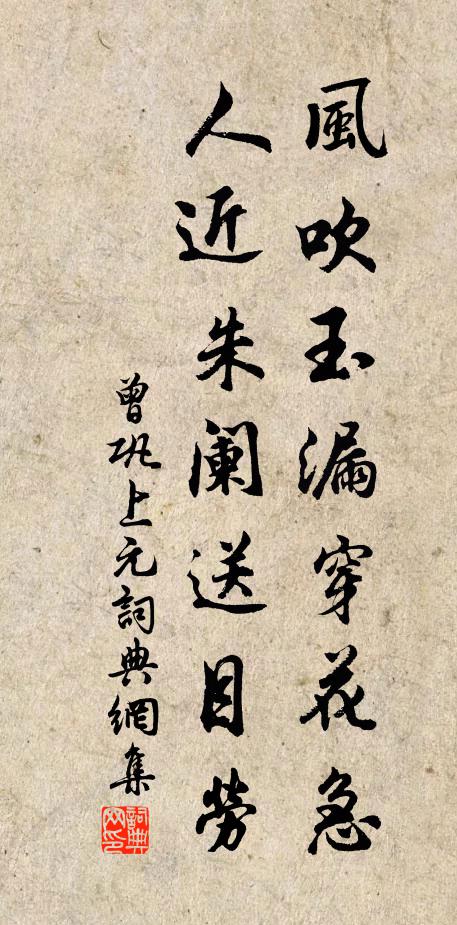 風吹玉漏穿花急
人近朱阑送目勞
曾巩上元詞典網集
詞典网印